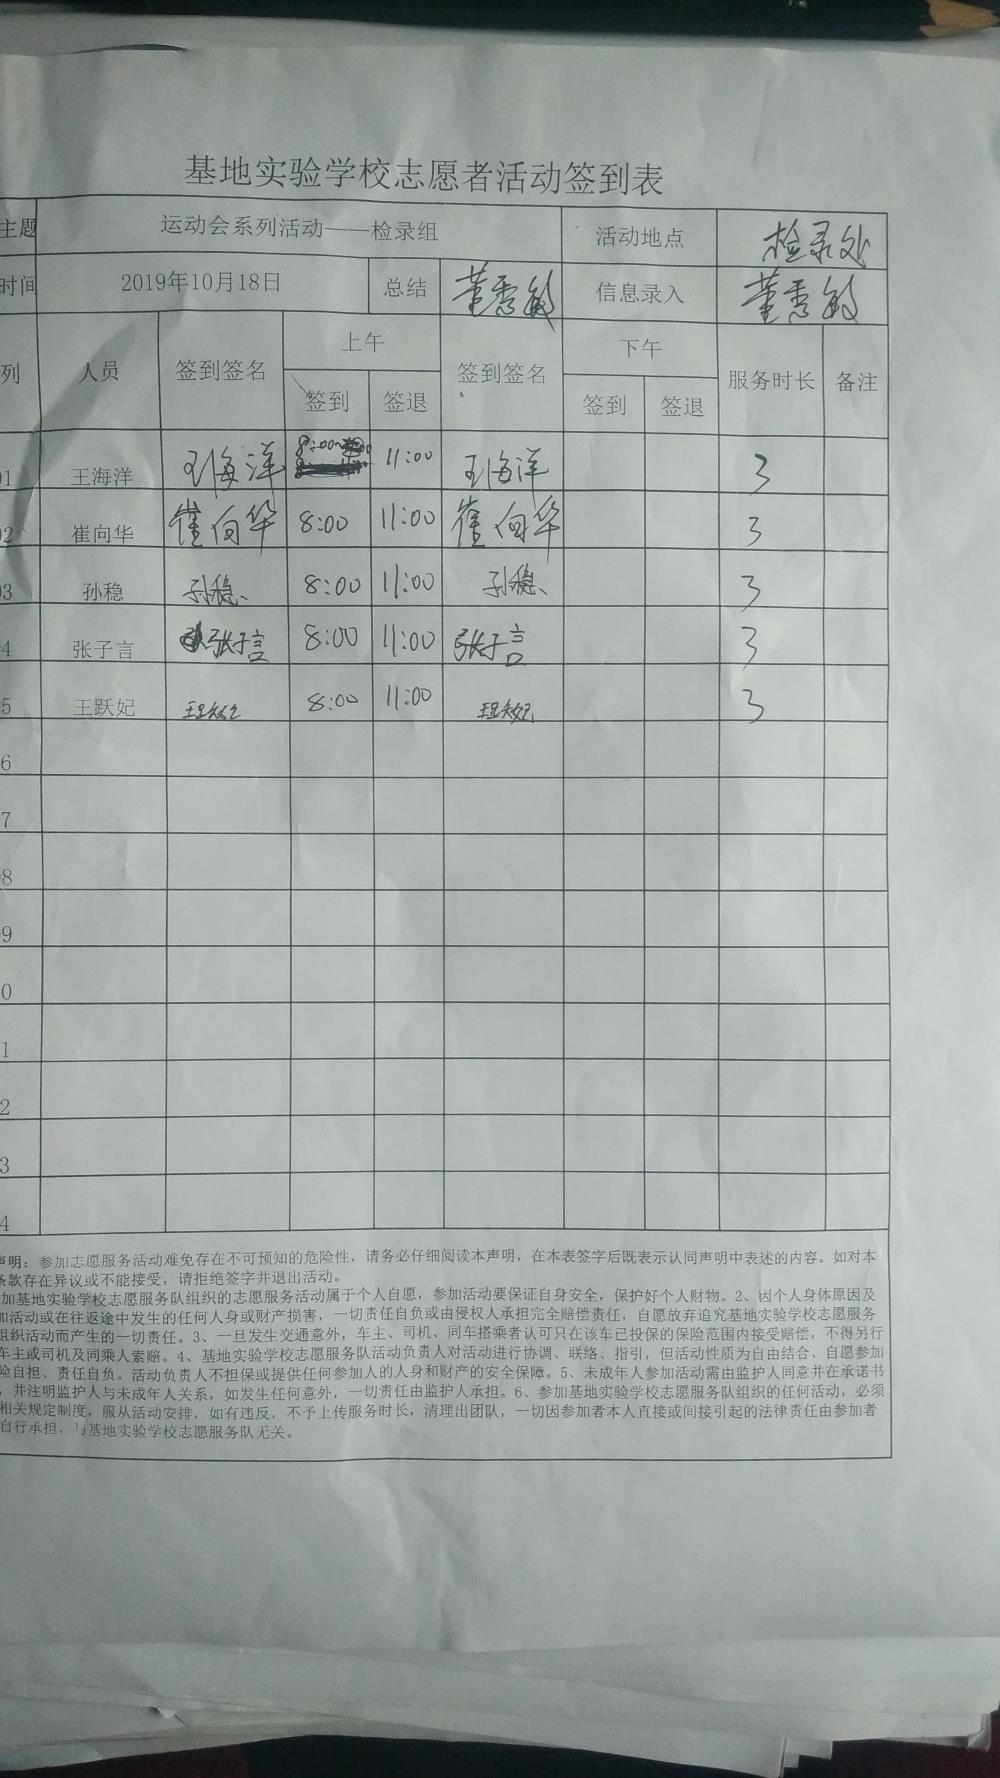 基地实验学校志愿者活动签到表
主题 运动会系列活动——检录组 活动地点 检录处
时间 2019年10月18日 总结 董秀敏 信息录入 董秀敏
列 人员 签到签名 上午 签到签名 下午 服务时长 备注
签到 签退 签到 签退
01 王海洋 王海洋 8:00 11:00 王海洋 3
02 崔向华 崔向华 8:00 11:00 崔向华 3
03 孙稳 孙稳 8:00 11:00 孙稳 3
4 张子言 张子言 8:00 11:00 张子言 3
5 王跃妃 8:00 11:00 3
6
7
8
9
0
1
2
3
4
声明：参加志愿服务活动难免存在不可预知的危险性，请务必仔细阅读本声明，在本表签字后既表示认同声明中表述的内容。如对本
条款存在异议或不能接受，请拒绝签字并退出活动。
加基地实验学校志愿服务队组织的志愿服务活动属于个人自愿，参加活动要保证自身安全，保护好个人财物。2、因个人身体原因及
加活动或在往返途中发生的任何人身或财产损害，一切责任自负或由侵权人承担完全赔偿责任，自愿放弃追究基地实验学校志愿服务
组织活动而产生的一切责任。3、一旦发生交通意外，车主、司机、同车搭乘者认可只在该车已投保的保险范围内接受赔偿，不得另行
车主或司机及同乘人索赔。4、基地实验学校志愿服务队活动负责人对活动进行协调、联络、指引，但活动性质为自由结合、自愿参加
险自担、责任自负。活动负责人不担保或提供任何参加人的人身和财产的安全保障。5、未成年人参加活动需由监护人同意并在承诺书
，并注明监护人与未成年人关系，如发生任何意外，一切责任由监护人承担。6、参加基地实验学校志愿服务队组织的任何活动，必须
相关规定制度，服从活动安排，如有违反，不予上传服务时长，清理出团队，一切因参加者本人直接或间接引起的法律责任由参加者
自行承担，与基地实验学校志愿服务队无关。